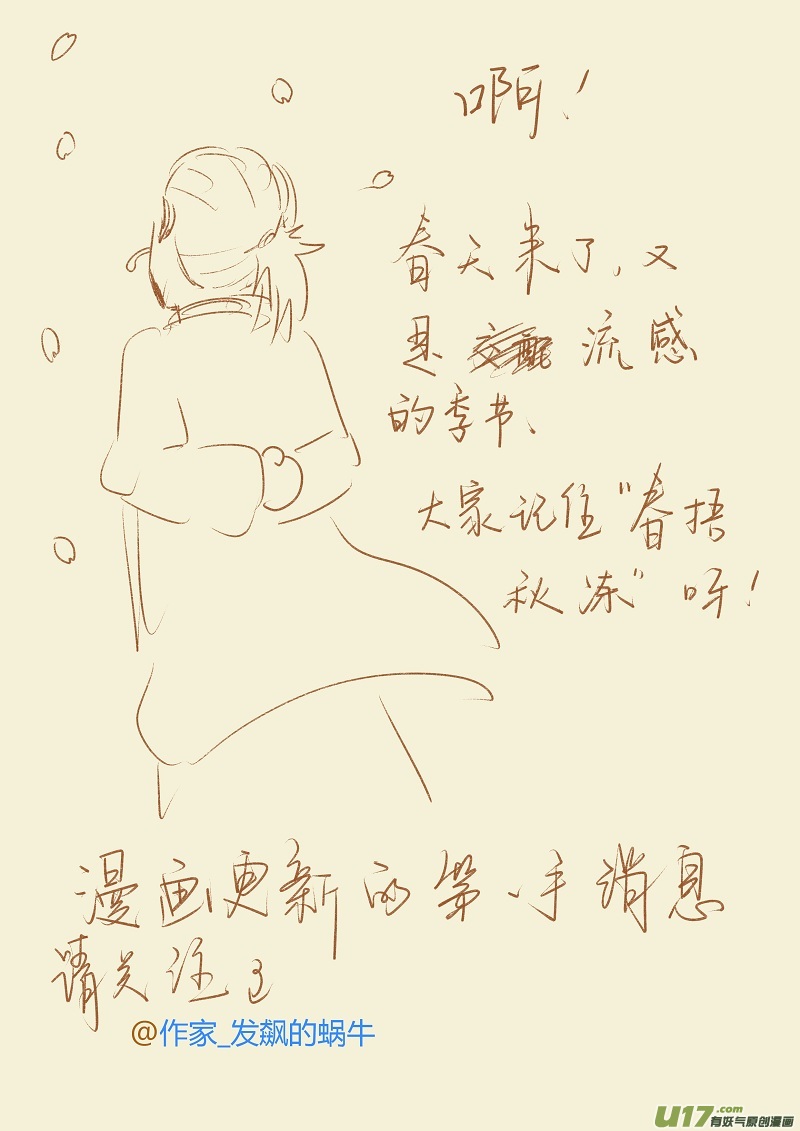 啊！
春天来了，又
是交配流感
的季节、
大家记住“春捂
秋冻”呀！
漫画更新的第一手消息
请关注
@作家_发飙的蜗牛
U17.com
有妖气原创漫画